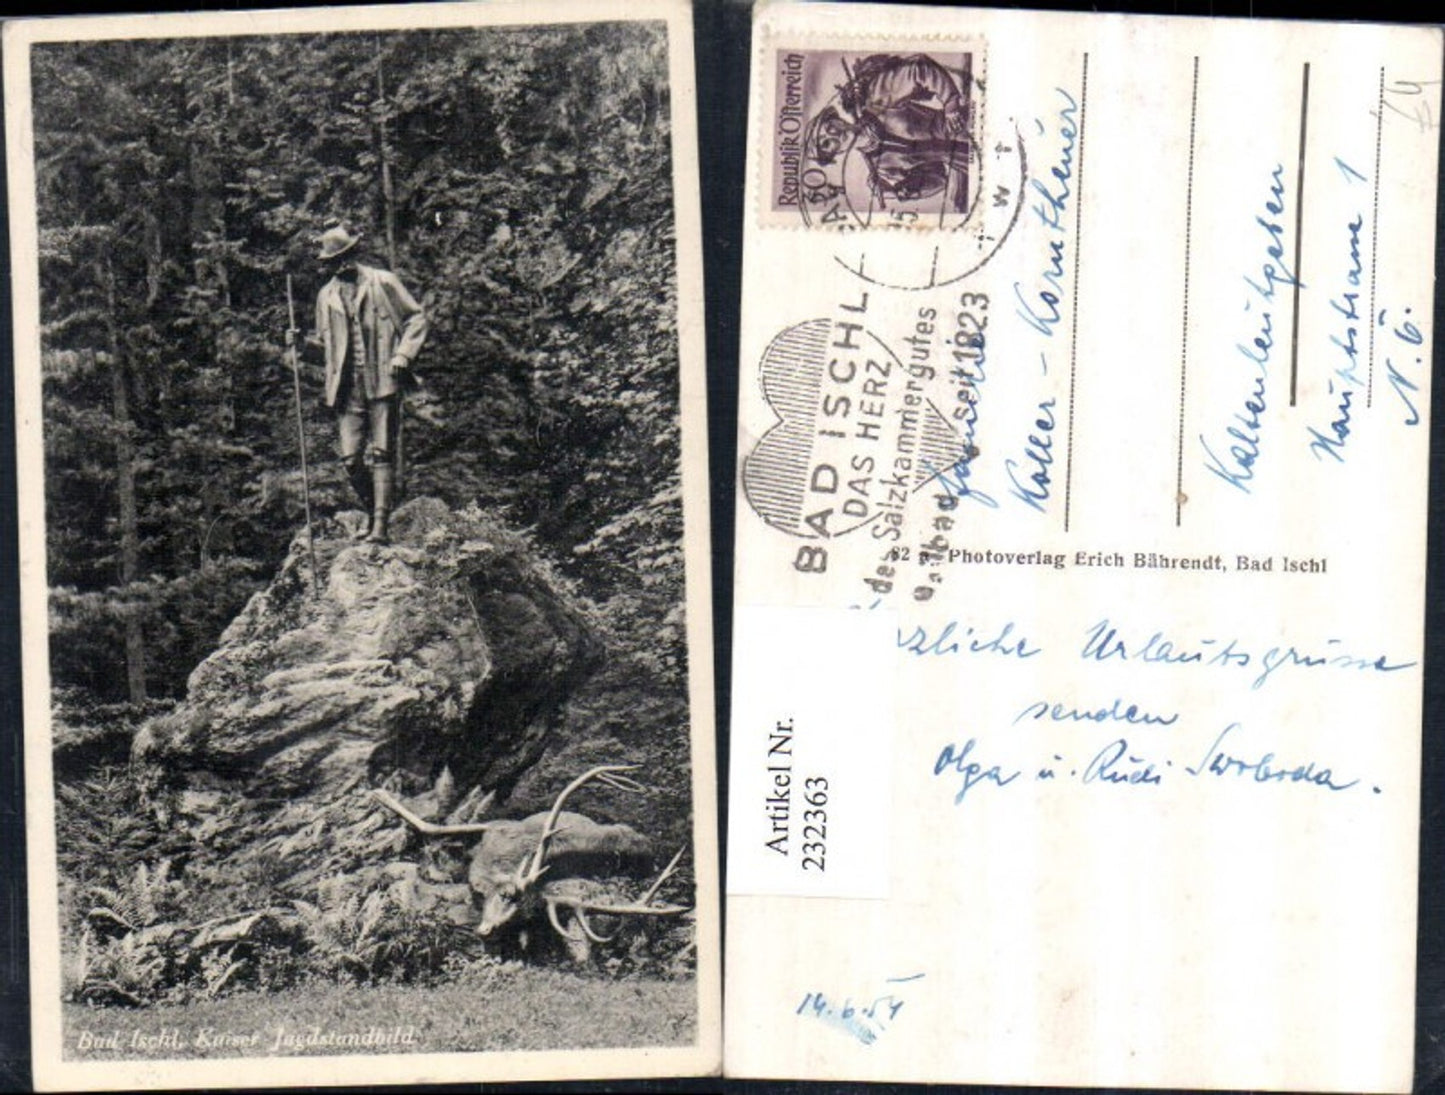 Bad Ischl, Kaiser Jagdstandbild
Republik Österreich
30
BAD ISCHL
DAS HERZ
des Salzkammergutes
seit 1823
Familie
Koller - Korntheuer
Kaltenleutgeben
Hauptstrasse 1
N.Ö.
Photoverlag Erich Bährendt, Bad Ischl
Urlaubsgrüsse
senden
Olga u. Rudi Swoboda.
Artikel Nr.
232363
14.6.54